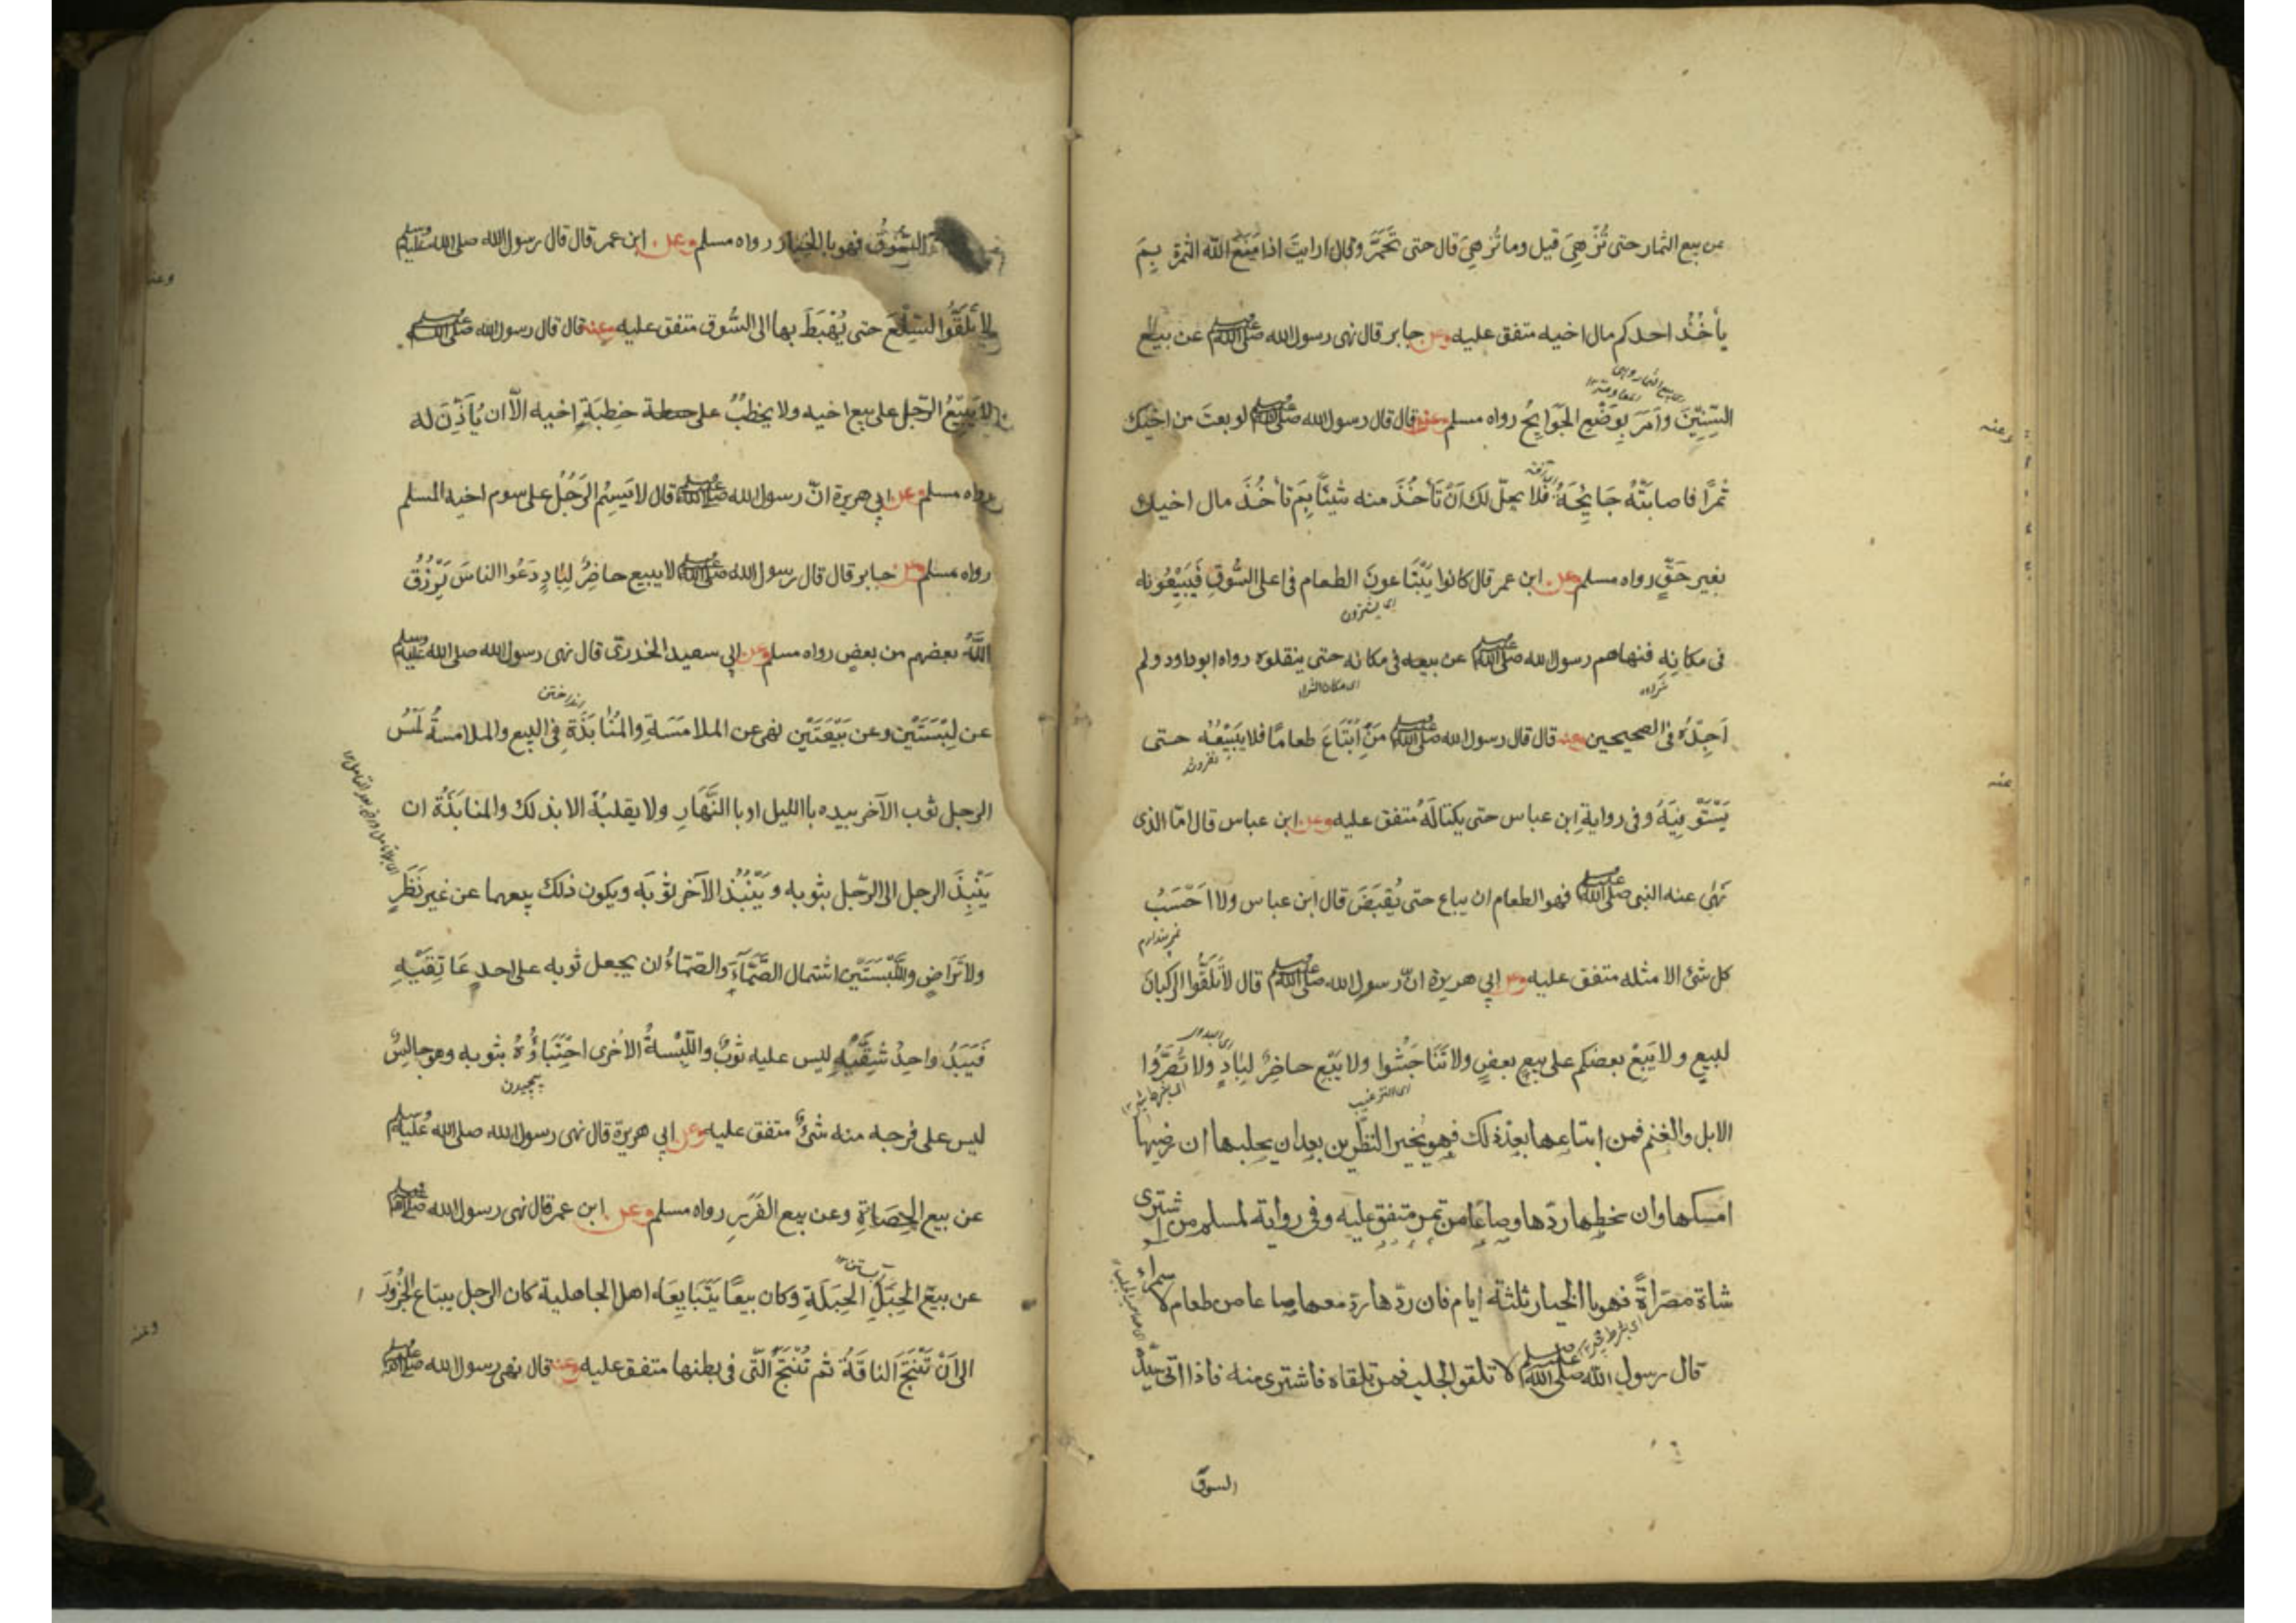 عن بيع الثمار حتى تُزْهِيَ قيل وما تُزهِيَ قال حتى تَحْمَرَّ وقال ارايتَ اذا مَنَعَ الله الثمرة بِمَ
يأخُذُ احدكم مال اخيه متفق عليه وعن جابر قال نهى رسول الله صلى الله عليه وسلم عن بيع
السِّنِيْنَ وَاَمَرَ بِوَضْعِ الجَوَايِحُ رواه مسلم وعنه قال قال رسول الله صلى الله عليه وسلم لو بعتَ من اخيك
ثمرًا فاصابَتْهُ جَايِحَةٌ فَلا يحلّ لك اَنْ تَأخُذَ منه شيئًا بِمَ تأخُذَ مال اخيك
بغير حَقٍّ رواه مسلم وعن ابن عمر قال كانوا يَبْتَاعونَ الطعام فى اعلى السُّوقِ فَيَبِيْعُونه
اى يشترون
فى مكانِه فنهاهم رسول الله صلى الله عليه وسلم عن بيعه فى مكانه حتى ينقلوه رواه ابو داود ولم
اى مكان الشراء
اَجِدْهُ فى الصحيحين وعنه قال قال رسول الله صلى الله عليه وسلم مَنِ ابْتَاعَ طعامًا فلا يَبِيْعُهْ حتى
يَسْتَوْفِيَهُ وفى رواية ابن عباس حتى يكتالَهُ متفق عليه وعن ابن عباس قال امّا الذى
نَهٰى عنه النبى صلى الله عليه وسلم فهو الطعام ان يباع حتى يُقبَضَ قال ابن عباس ولا اَحْسَبُ
نمى پندارم
كل شئ الا مثله متفق عليه وعن ابي هريرة انّ رسول الله صلى الله عليه وسلم قال لا تَلَقَّوُا الركبانَ
لبيعٍ ولا يَبِعْ بعضكم على بيع بعضٍ ولا تَنَاجَشُوا ولا يَبِع حاضِرٌ لِبَادٍ ولا تُصَرُّوا
اى الترغيب
الابل والغنم فمن ابتاعها بعد ذلك فهو بخير النظرين بعد ان يحلبها ان رضيها
امسكها وان سخطها ردّها وصاعًا من تمر متفق عليه وفى رواية لمسلم من اشترى
شاة مصرّاةً فهو بالخيار ثلثة ايام فان ردّها ردّ معها صاعا من طعام لا سمراء
قال رسول الله صلى الله عليه وسلم لا تلقوا الجلب فمن تلقاه فاشترى منه فاذا اتى سيّدُه
السوقَ
السُّوقَ فهو بالخيار رواه مسلم وعن ابن عمر قال قال رسول الله صلى الله عليه وسلم
لا تَلَقَّوُا السِّلَعَ حتى يُهْبَطَ بها الى السُّوق متفق عليه وعنه قال قال رسول الله صلى الله عليه وسلم
لا يَبِيْعُ الرّجل على بيع اخيه ولا يخطبُ على خِطبَةِ اخيه الّا ان يُأذَنَ له
رواه مسلم وعن ابي هريرة انّ رسول الله صلى الله عليه وسلم قال لا يَسُمِ الرَجُلُ على سوم اخيه المسلم
رواه مسلم وعن جابر قال قال رسول الله صلى الله عليه وسلم لا يبيع حاضِرٌ لِبَادٍ دَعُوا الناسَ يَرْزُقُ
اللهُ بعضهم من بعض رواه مسلم وعن ابي سعيد الخدرىّ قال نهى رسول الله صلى الله عليه وسلم
عن لِبْسَتَيْنِ وعن بَيْعَتَيْنِ نهى عن الملامَسَةِ والمُنَابَذَةِ فى البيع والملامسةُ لَمْسُ
الرجل ثوب الآخر بيده باالليل او با النَّهَارِ ولا يقلبُهُ الا بذلك والمنابَذَةُ ان
يَنْبِذَ الرجل الى الرّجل بثوبه ويَنْبُذَ الآخر ثوبَه ويكون ذلك بيعهما عن غير نَظَرٍ
ولا تَرَاضٍ واللِّبْسَتَيْنِ اشتمال الصَّمَّآءِ والصمّاءُ ان يجعل ثوبه على احد عَاتِقَيْهِ
فَيَبْدُ واحدُ شِقَّيْهِ ليس عليه ثوبٌ واللِّبْسةُ الاخرى احْتِبَاؤُهُ بثوبه وهو جالسٌ
پیچیدن
ليس على فرجه منه شئٌ متفق عليه وعن ابي هريرة قال نهى رسول الله صلى الله عليه وسلم
عن بيع الحِصَاةِ وعن بيع الغَرَرِ رواه مسلم وعن ابن عمر قال نهى رسول الله صلى الله عليه وسلم
عن بيعِ الحَبَلِ الحَبَلَةِ وكان بيعًا يَتَبَايعَه اهل الجاهلية كان الرجل يبتاع الجُزُورَ
الى اَنْ تُنْتَجَ الناقَةُ ثم تُنْتَجَ الَّتى فى بطنها متفق عليه وعنه قال نهى رسول الله صلى الله عليه وسلم